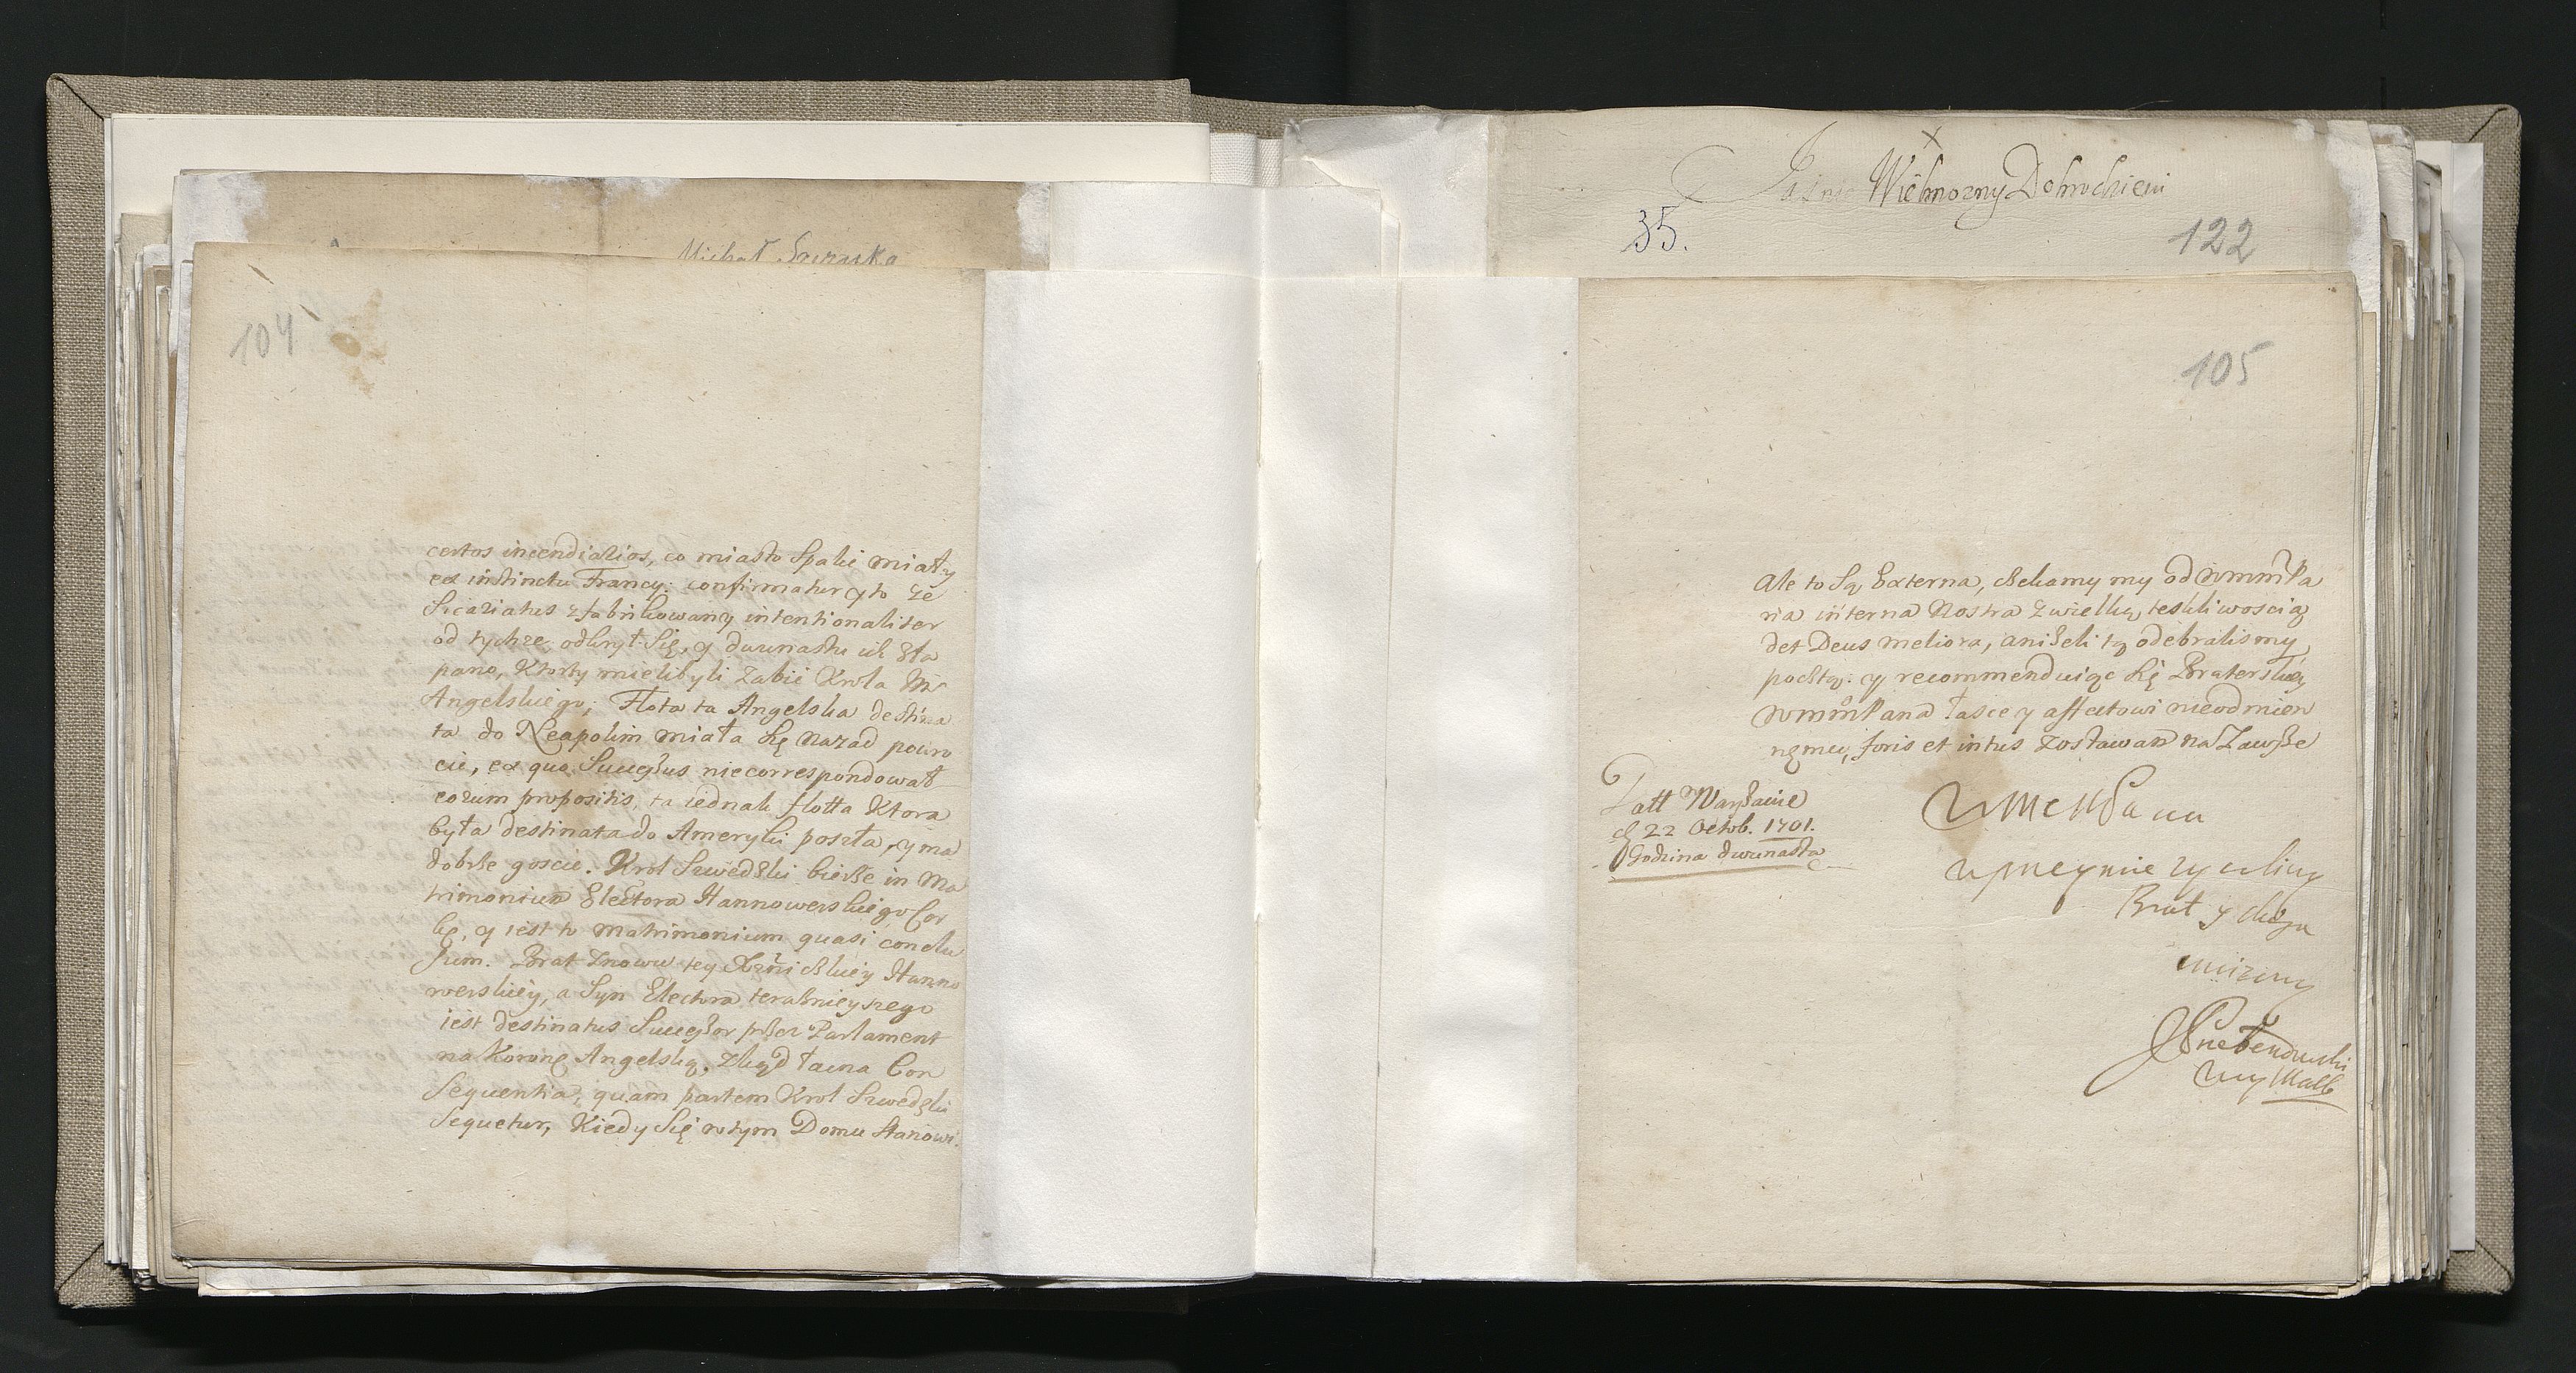 Michał Szczuka
104
certos incendiarios, co miasto Spalić miały
ex instinctu Francy: confirmatur y to że
Sicariatus zfabrikowany intentionaliter
od tychże odkrył Się, y dwunastu ich zła
pano, Ktorzy mieli byli zabić Krola
Angelskiego; Flota ta Angelska destina
ta do Neapolim miała Się nazad powro
cić, ex quo Sucessus niecorrespondował
eorum propositis, ta iednak flotta Ktora
była destinata do Ameryki poszła, y ma
dobrze goscie. Krol Szwedzki bierze in Ma
trimonium Electora Hannowerskiego Cor
kę, y iest to Matrimonium quasi conclu
sum. Brat znowu tey Hanno
werskiey, a Syn Electora teraznieyszego
iest destinatus Sucessor przez Parlament
na Koronę Angelską, zkąd łacna Con
Sequentia, quam partem Krol Szwedzki
Sequetur, Kiedy Się wtym Domu stanowi.
Jasnie Wielmozny Dobrodzieiu
35.
122
105
Ale to Są Externa, czekamy my od WMMPa
na interna Nostra zwielką teskliwoscią
det Deus meliora, aniżeli tą odebralismy
pocztą: y recommenduiąc Się Braterskiey
WMMPana łasce y affectowi nieodmien
nęmu, foris et intus zostawam na Zawsze
Datt Warszawie
d 22 Octob. 1701.
Godzina dwunasta
WMMPana
uprzeymie zyczliwy
Brat y sługa
unizony
JPrebendowski